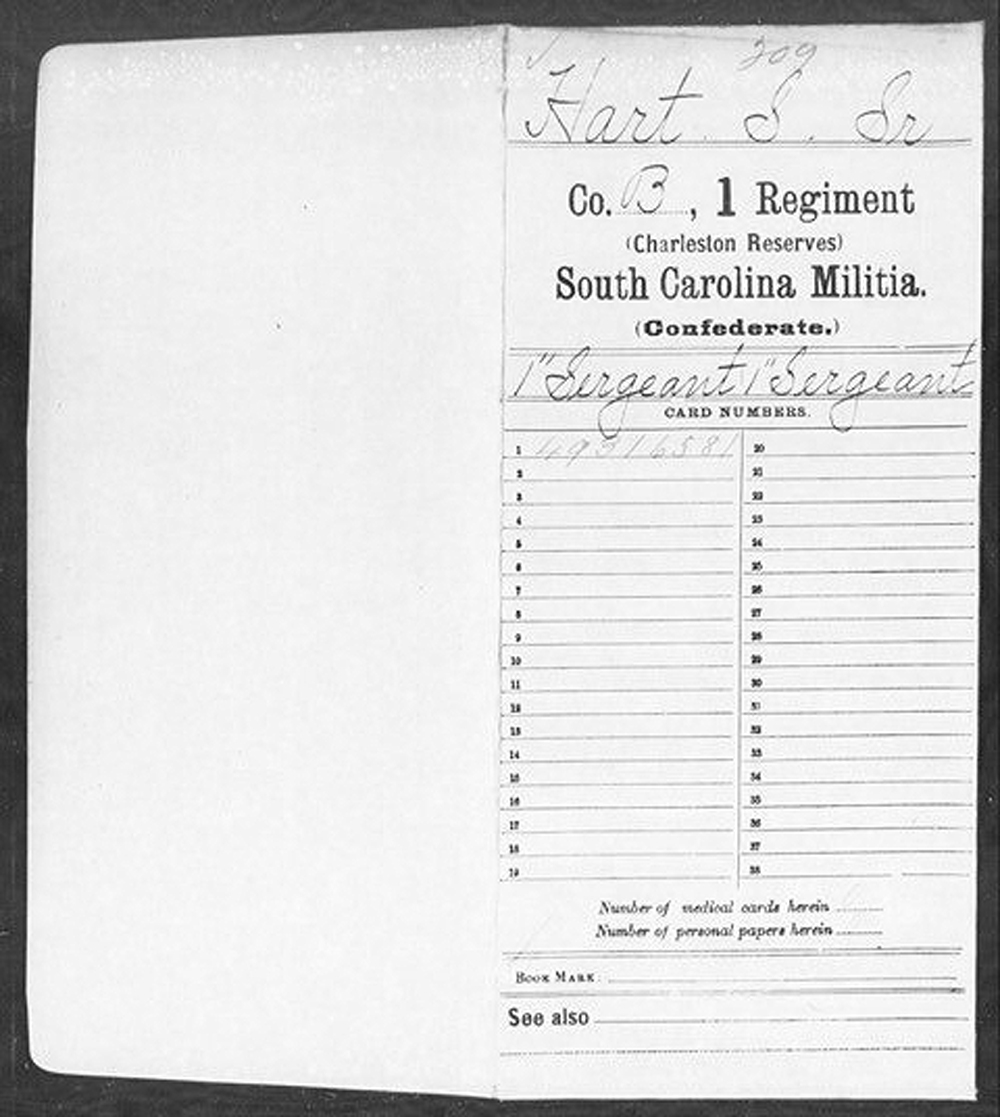 209
Hart S. Sr
Co. B, 1 Regiment
(Charleston Reserves)
South Carolina Militia.
(Confederate.)
1" Sergeant 1" Sergeant
CARD NUMBERS.
1 49316581 20
2 21
3 22
4 23
5 24
6 25
7 26
8 27
9 28
10 29
11 30
12 31
13 32
14 33
15 34
16 35
17 36
18 37
19 38
Number of medical cards herein
Number of personal papers herein
BOOK MARK:
See also